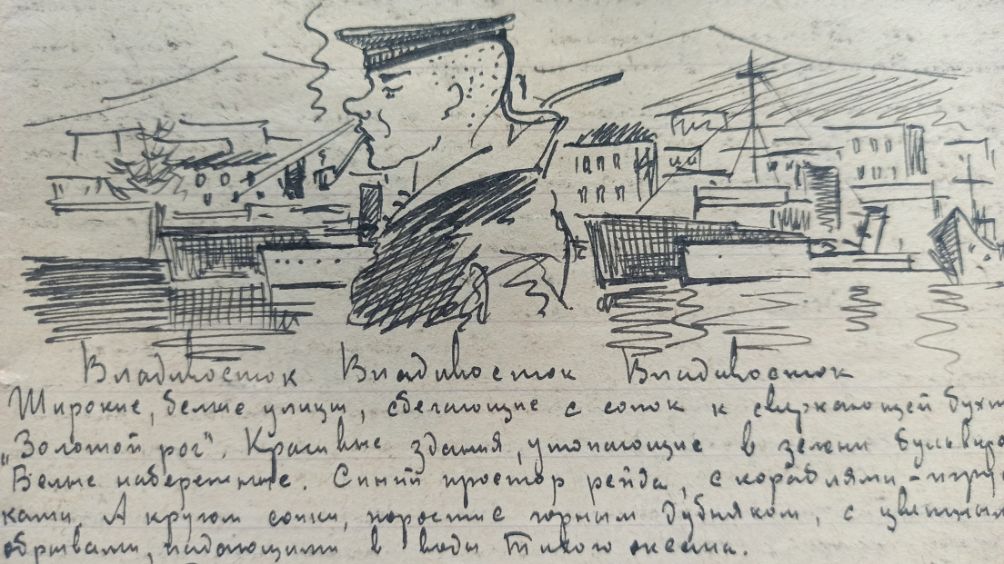 Владивосток Владивосток Владивосток
Широкие, белые улицы, сбегающие с сопок к сверкающей бухте
„Золотой рог". Красивые здания, утопающие в зелени бульвиро
Белые набережные. Синий простор рейда, с кораблями-игруш
ками. А кругом сопки, поросшие горным дубняком, с цветными
обрывами, падающими в воды Тихого океана.